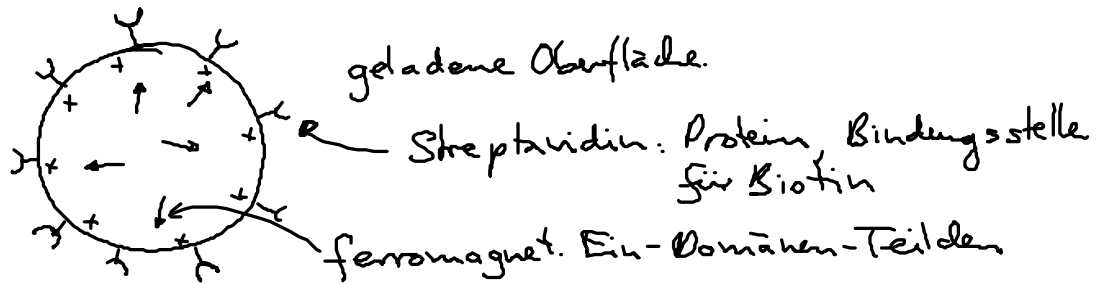 geladene Oberfläche.
Streptavidin: Protein, Bindungsstelle
für Biotin
ferromagnet. Ein-Domänen-Teilchen